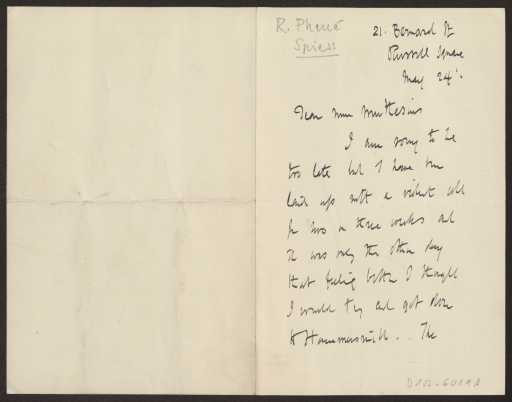 R. Phené
Spiers
21. Bernard St
Russell Square
May 24.
Dear Mrs Muthesius
I am sorry to be
too late but I have been
laid up with a violent cold
for two or three weeks and
it was only the other day
that feeling better I thought
I would try and get down
to Hammersmith . . The